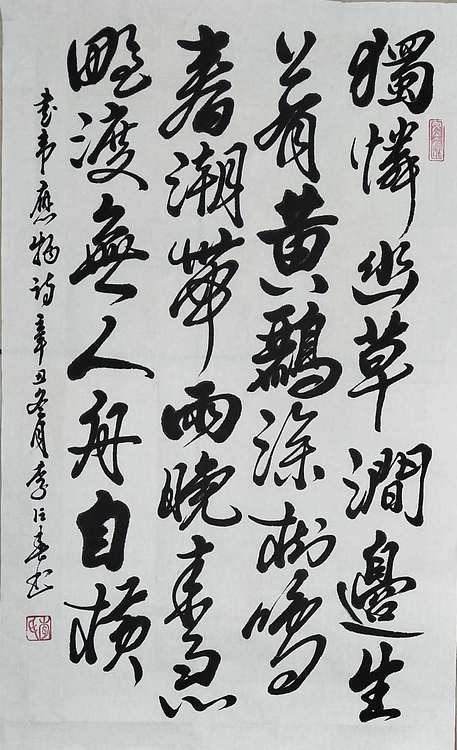 獨憐幽草澗邊生
上有黃鸝深樹鳴
春潮帶雨晚來急
野渡無人舟自橫
書韋應物詩辛丑冬月李書